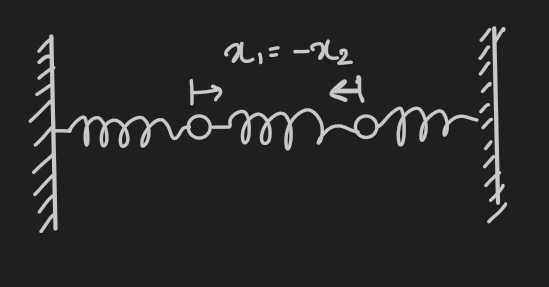 x₁ = -x₂